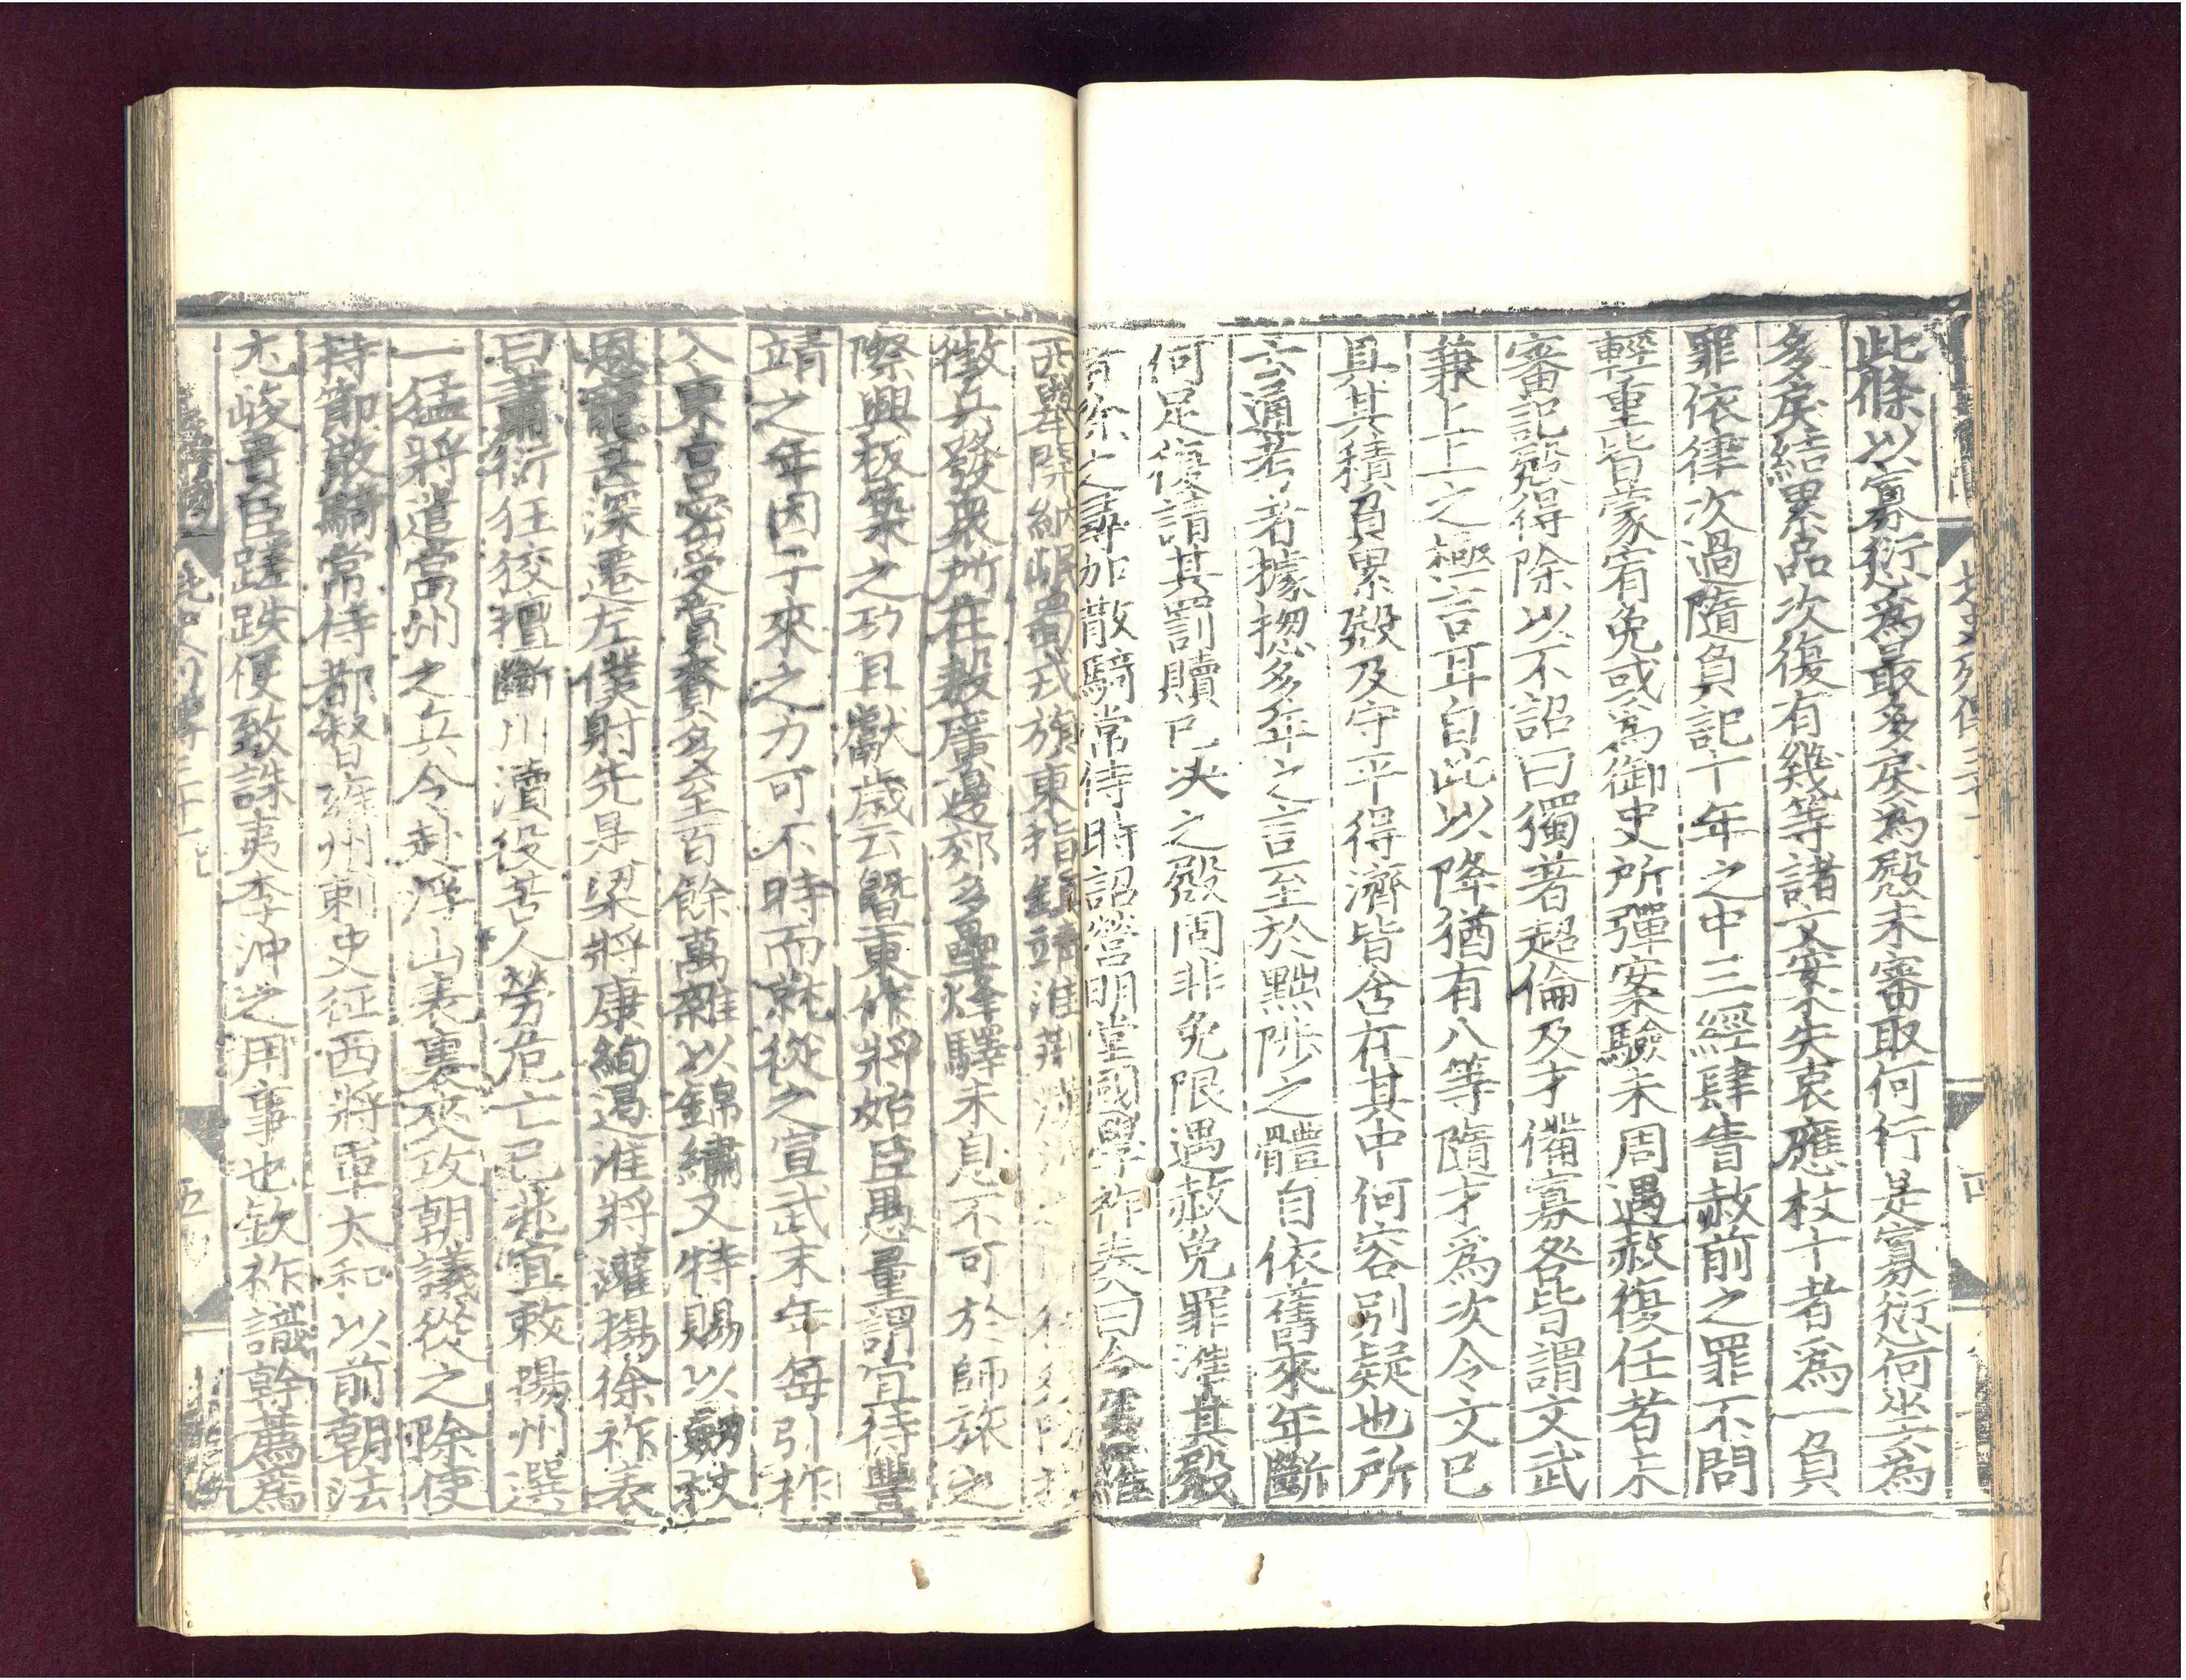 北史列傳三十一
四
此條以寡愆爲最多戾爲殿未審取何行是寡愆何坐爲
多戾結累品次復有幾等諸文案失衷應杖十者爲一負
罪依律次過隨負記十年之中三經肆眚赦前之罪不問
輕重皆蒙宥免或爲御史所彈案驗未周遇赦復任者未
審記殿得除以不詔曰獨著超倫及才備寡咎皆謂文武
兼上上之極言耳自此以降猶有八等隨才爲次令文已
具其積負累殿及守平得濟皆含在其中何容別疑也所
云通考者據揔多年之言至於黜陟之體自依舊來年斷
何足復請其罰贖已决之殿固非免限遇赦免罪准其殿
除之尋加散騎常侍時詔營明堂國學祚奏曰今雲羅
西舉開納岷蜀戎旗東指鎮靖淮荆
徵兵發衆所在殷廣邊郊多壘烽驛未息不可於師旅之
際興板築之功且獻歲云曁東作將始臣愚量謂宜待豐
靖之年因子來之力可不時而就從之宣武末年每引祚
入東宮密受賞賚多至百餘萬雜以錦繡又特賜以劔杖
恩寵甚深遷左僕射先是梁將康絢遏淮將灌揚徐祚表
曰蕭衍狂狡擅斷川瀆役苦人勞危亡已兆宜敕揚州選
一猛將遣當州之兵令赴浮山表裏夾攻朝議從之除使
持節散騎常侍都督雍州刺史征西將軍太和以前朝法
尤峻貴臣蹉跌便致誅夷李沖之用事也欽祚識幹薦爲
北史列傳三十一
五